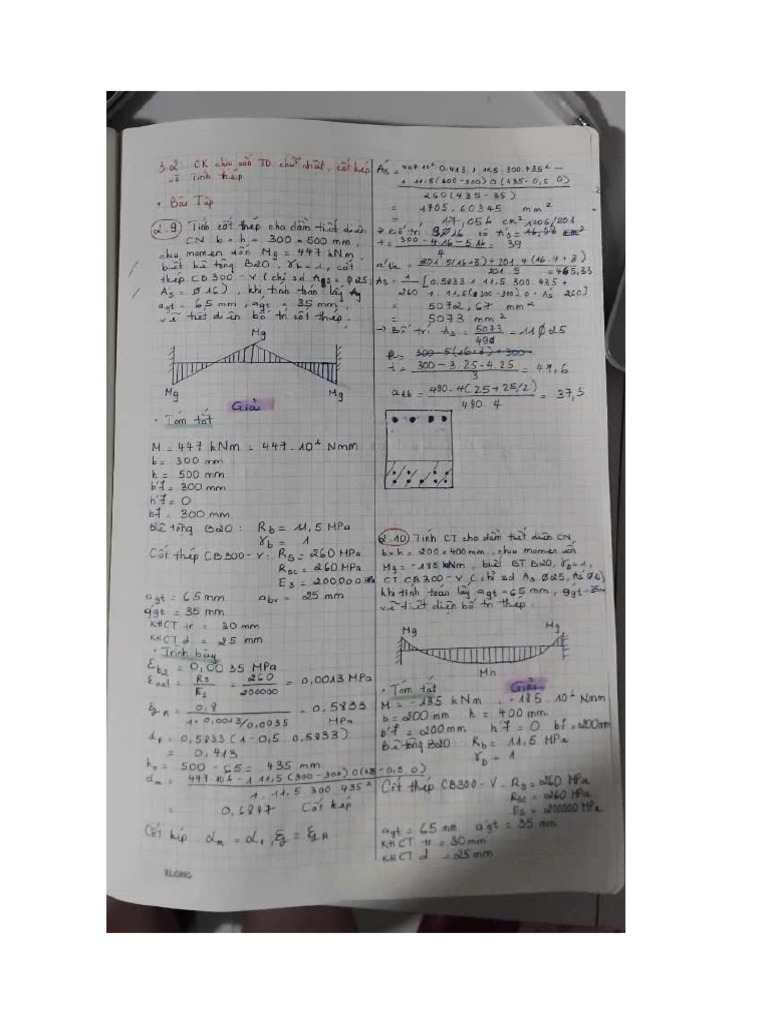 3.2 CK chịu uốn TD chữ nhật, cốt kép
và tính thép
• Bài Tập
2.9 Tính cốt thép cho dầm tiết diện
CN b × h = 300 × 500 mm,
chịu momen uốn Mg = 447 kNm,
biết bê tông B20, γb = 1, cốt
thép CB300-V (chỉ sd As = Ø25,
A's = Ø16), khi tính toán lấy
agt = 65 mm, a'gt = 35 mm,
vẽ tiết diện bố trí cốt thép.
Mg
Mg
Mg
Giải
• Tóm tắt
M = 447 kNm = 447.10⁶ Nmm
b = 300 mm
h = 500 mm
b'f = 300 mm
h'f = 0
bf = 300 mm
Bê tông B20: Rb = 11,5 MPa
γb = 1
Cốt thép CB300-V: Rs = 260 MPa
Rsc = 260 MPa
Es = 200000
agt = 65 mm abv = 25 mm
a'gt = 35 mm
KHCT tr = 30 mm
KHCT d = 25 mm
• Trình bày
εb2 = 0,0035 MPa
= Rs/Es = 260/200000 = 0,0013 MPa
ξR = 0,8/(1+0,0013/0,0035) = 0,5833
MPa
αR = 0,5833(1-0,5.0,5833)
= 0,413
h0 = 500 - 65 = 435 mm
αm = 447.10⁶ - 1.11,5(300-300)0(435-0,5.0)
1.11,5.300.435²
= 0,6847 Cốt kép
Cốt kép αm = αr, ξ = ξR
A's = 447.10⁶ - 0,413.1.11,5.300.435² -
1.11,5(300-300)0(435-0,5.0)
260(435-35)
= 1705,60345 mm²
= 17,056 cm² 1706/201
t = 300-4.16-5.16 = 39
4
a'tk = 201.5(16+8)+201.4(16.4+8)
201.9 = 465,33
As = 1/260 [0,5833.1.11,5.300.435 +
1.11,5(300-300).0 + A's 260]
= 5072,67 mm²
= 5073 mm²
→ Bố trí As = 5073/490 = 11Ø25
t = 300-3.25-4.25 = 47,6
3
atk = 490.4(25+25/2) = 37,5
490.4
2.10 Tính CT cho dầm tiết diện CN
b×h = 200×400 mm, chịu momen uốn
Mg = -185 kNm, biết BT B20, γb=1,
CT CB300-V (chỉ sd As Ø25,
khi tính toán lấy agt = 65 mm, a'gt = 35mm
vẽ tiết diện bố trí thép.
Mg
Mg
Mn
Giải
• Tóm tắt
M = -185 kNm = -185.10⁶ Nmm
b = 200 mm h = 400 mm
b'f = 200 mm h'f = 0 bf = 200mm
Bê tông B20: Rb = 11,5 MPa
γb = 1
Cốt thép CB300-V: Rs = 260 MPa
Rsc = 260 MPa
Es = 200000 MPa
agt = 65 mm a'gt = 35 mm
KHCT tr = 30 mm
KHCT d = 25 mm
KLONG